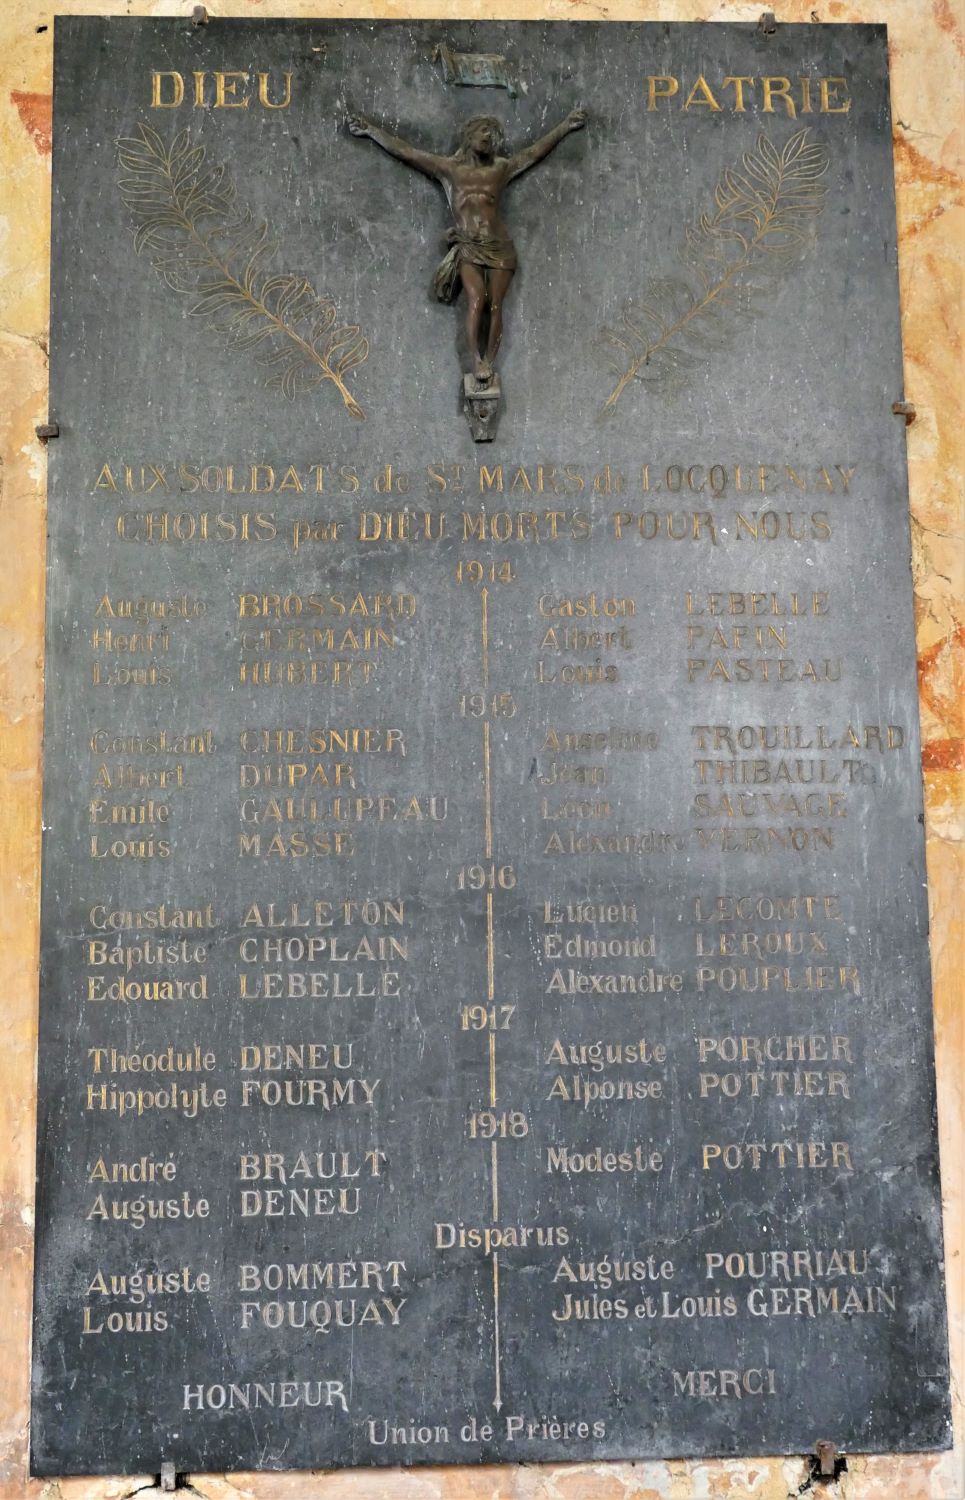 DIEU PATRIE
AUX SOLDATS de ST MARS de LOCQUENAY
CHOISIS par DIEU MORTS POUR NOUS
1914
Auguste BROSSARD Gaston LEBELLE
Henri GERMAIN Albert PAPIN
Louis HUBERT Louis PASTEAU
1915
Constant CHESNIER Anselme TROUILLARD
Albert DUPAR Jean THIBAULT
Emile GAULUPEAU Léon SAUVAGE
Louis MASSE Alexandre VERNON
1916
Constant ALLETON Lucien LECOMTE
Baptiste CHOPLAIN Edmond LEROUX
Edouard LEBELLE Alexandre POUPLIER
1917
Théodule DENEU Auguste PORCHER
Hippolyte FOURMY Alponse POTTIER
1918
André BRAULT Modeste POTTIER
Auguste DENEU
Disparus
Auguste BOMMERT Auguste POURRIAU
Louis FOUQUAY Jules et Louis GERMAIN
HONNEUR MERCI
Union de Prières